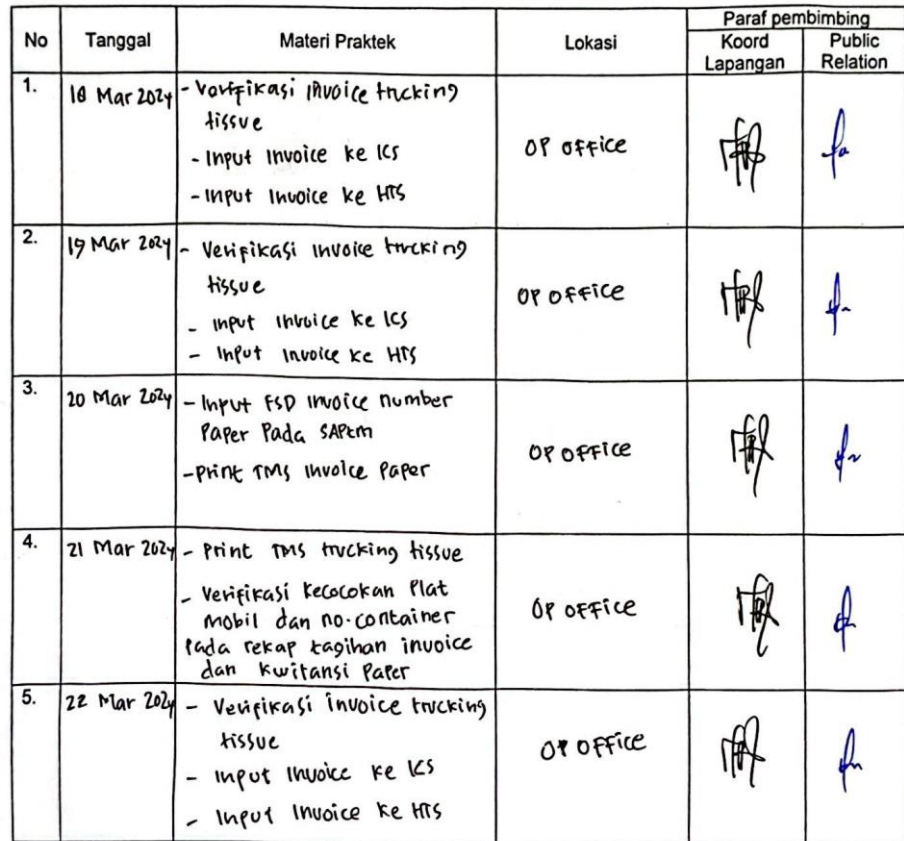 No Tanggal Materi Praktek Lokasi Paraf pembimbing
Koord Lapangan Public Relation
1. 18 Mar 2024 - Verifikasi invoice trucking
tissue
- Input Invoice ke ICS
- Input Invoice ke HTS
OP OFFice
2. 19 Mar 2024 - Verifikasi invoice trucking
tissue
- Input Invoice ke ICS
- Input Invoice ke HTS
OP OFFice
3. 20 Mar 2024 - Input FSD invoice number
Paper Pada
- Print TMS Invoice Paper
OP OFFice
4. 21 Mar 2024 - Print TMS trucking tissue
- Verifikasi kecocokan Plat
mobil dan no.container
Pada rekap tagihan invoice
dan kwitansi Paper
OP OFFice
5. 22 Mar 2024 - Verifikasi invoice trucking
tissue
- Input Invoice ke ICS
- Input Invoice ke HTS
OP OFFice